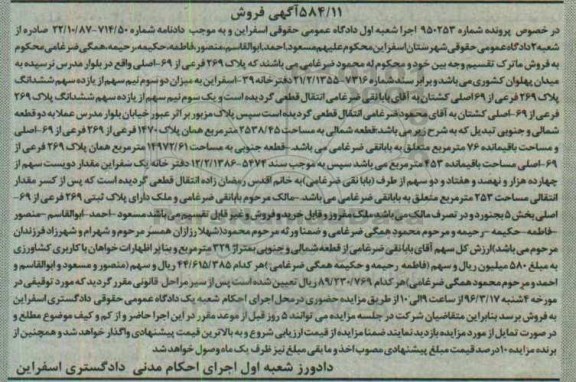 ۵۸۴/۱۱آگهی فروش
در خصوص پرونده شماره ۹۵۰۲۵۳ اجرا شعبه اول دادگاه عمومی حقوقی اسفراین و به موجب دادنامه شماره ۷۱۴/۵۰-۲۲/۱۰/۸۷ صادره از
شعبه۲دادگاه عمومی حقوقی شهرستان اسفراین محکوم علیهم مسعود،احمد،ابوالقاسم،منصور،فاطمه،حکیمه،رحیمه،همگی ضرغامی محکوم
به فروش ماترک تقسیم وجه بین خود و محکوم له محمود ضرغامی می باشند که پلاک ۲۶۹ فرعی از ۶۹-اصلی واقع در بلوار مدرس نرسیده به
میدان پهلوان کشوری می باشد و برابر سند شماره ۷۳۱۶-۲۱/۲/۱۳۵۵ دفترخانه ۳۹-اسفراین به میزان دو سوم نیم سهم از یازده سهم ششدانگ
پلاک ۲۶۹ فرعی از ۶۹اصلی کشتان به آقای بابانقی ضرغامی انتقال قطعی گردیده است و یک سوم نیم سهم از یازده سهم ششدانگ پلاک ۲۶۹
فرعی از ۶۹-اصلی کشتان به آقای محمود ضرغامی انتقال قطعی گردیده است سپس پلاک مزبور بر اثر عبور خیابان بلوار مدرس عملا به دو قطعه
شمالی و جنوبی تبدیل که به شرح زیر می باشد:قطعه شمالی به مساحت ۲۵۳۸/۴۵ مترمربع همان پلاک ۱۴۷۰ فرعی از ۲۶۹ فرعی از ۶۹-اصلی
و مساحت باقیمانده ۷۶ مترمربع متعلق به بابانقی ضرغامی می باشد. قطعه جنوبی به مساحت ۱۴۹۷۲/۶۱ مترمربع همان پلاک ۲۶۹ فرعی از
۶۹-اصلی مساحت باقیمانده ۴۵۳ مترمربع می باشد سپس به موجب سند ۵۴۷۴-۱۲/۲/۱۳۸۶ دفتر خانه یک اسفراین مقدار دویست سهم از
چهارده هزار و نهصد و هفتاد و دو سهم از طرف (بابا نقی ضرغامی)به خانم اقدس رمضان زاده انتقال قطعی گردیده است که پس از کسر مقدار
انتقالی مساحت ۲۵۳ مترمربع متعلق به بابانقی ضرغامی می باشد -مالک مرحوم بابانقی ضرغامی و ملک دارای پلاک ثبتی ۲۶۹ فرعی از ۶۹-
اصلی بخش ۵ بجنورد و در تصرف مالک می باشد ملک مفروز و قابل خرید و فروش و غیر قابل تقسیم می باشد مسعود -احمد -ابوالقاسم -منصور
-فاطمه -حکیمه -رحیمه و مرحوم محمود همگی ضرغامی و ضمنا ورثه مرحوم محمود(شهلا رزازان همسر مرحوم و شهرام و شهرزاد فرزندان
مرحوم می باشد)ارزش کل سهم آقای بابانقی ضرغامی از قطعه شمالی و جنوبی بمتراژ ۳۲۹ مترمربع و بنابر اظهارات خواهان با کاربری کشاورزی
به مبلغ ۵۸۰ میلیون ریال و سهم (فاطمه رحیمه و حکیمه همگی ضرغامی )هر کدام ۴۴/۶۱۵/۳۸۵ ریال و سهم (منصور و مسعود و ابوالقاسم و
احمد و مرحوم محمود همگی ضرغامی)هر کدام ۸۹/۲۳۰/۷۶۹ ریال تعیین شده است پس از سیر مراحل قانونی مقرر گردید که مورد توقیفی در
مورخه ۴شنبه ۹۶/۳/۱۷ از ساعت ۹الی۱۰ از طریق مزایده حضوری در محل اجرای احکام شعبه یک دادگاه عمومی حقوقی دادگستری اسفراین
به فروش برسد بنابراین متقاضیان شرکت در جلسه مزایده می توانند ۵ روز قبل از موعد مقرر در این اجرا حاضر و از کم و کیف موضوع مطلع و
در صورت تمایل از مورد مزایده بازدید نمایند ضمنا مزایده از قیمت ارزیابی شروع و به بالاترین قیمت پیشنهادی واگذار خواهد شد و همچنین از
برنده مزایده ۱۰درصد قیمت مبلغ پیشنهادی مصوب اخذ و مابقی مبلغ نیز ظرف یک ماه وصول خواهد شد
دادورز شعبه اول اجرای احکام مدنی دادگستری اسفراین